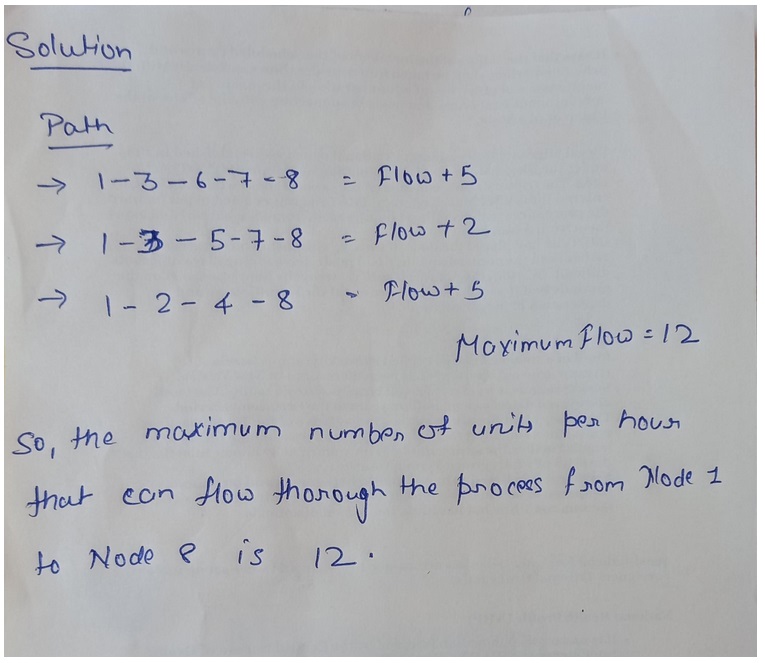 Solution
Path
→ 1-3-6-7-8 = Flow + 5
→ 1-3-5-7-8 = Flow + 2
→ 1-2-4-8 = Flow + 5
Maximum flow = 12
So, the maximum number of units per hour
that can flow thorough the process from Node 1
to Node 8 is 12.